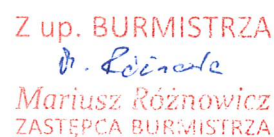 Z up. BURMISTRZA
Mariusz Różnowicz
ZASTĘPCA BURMISTRZA